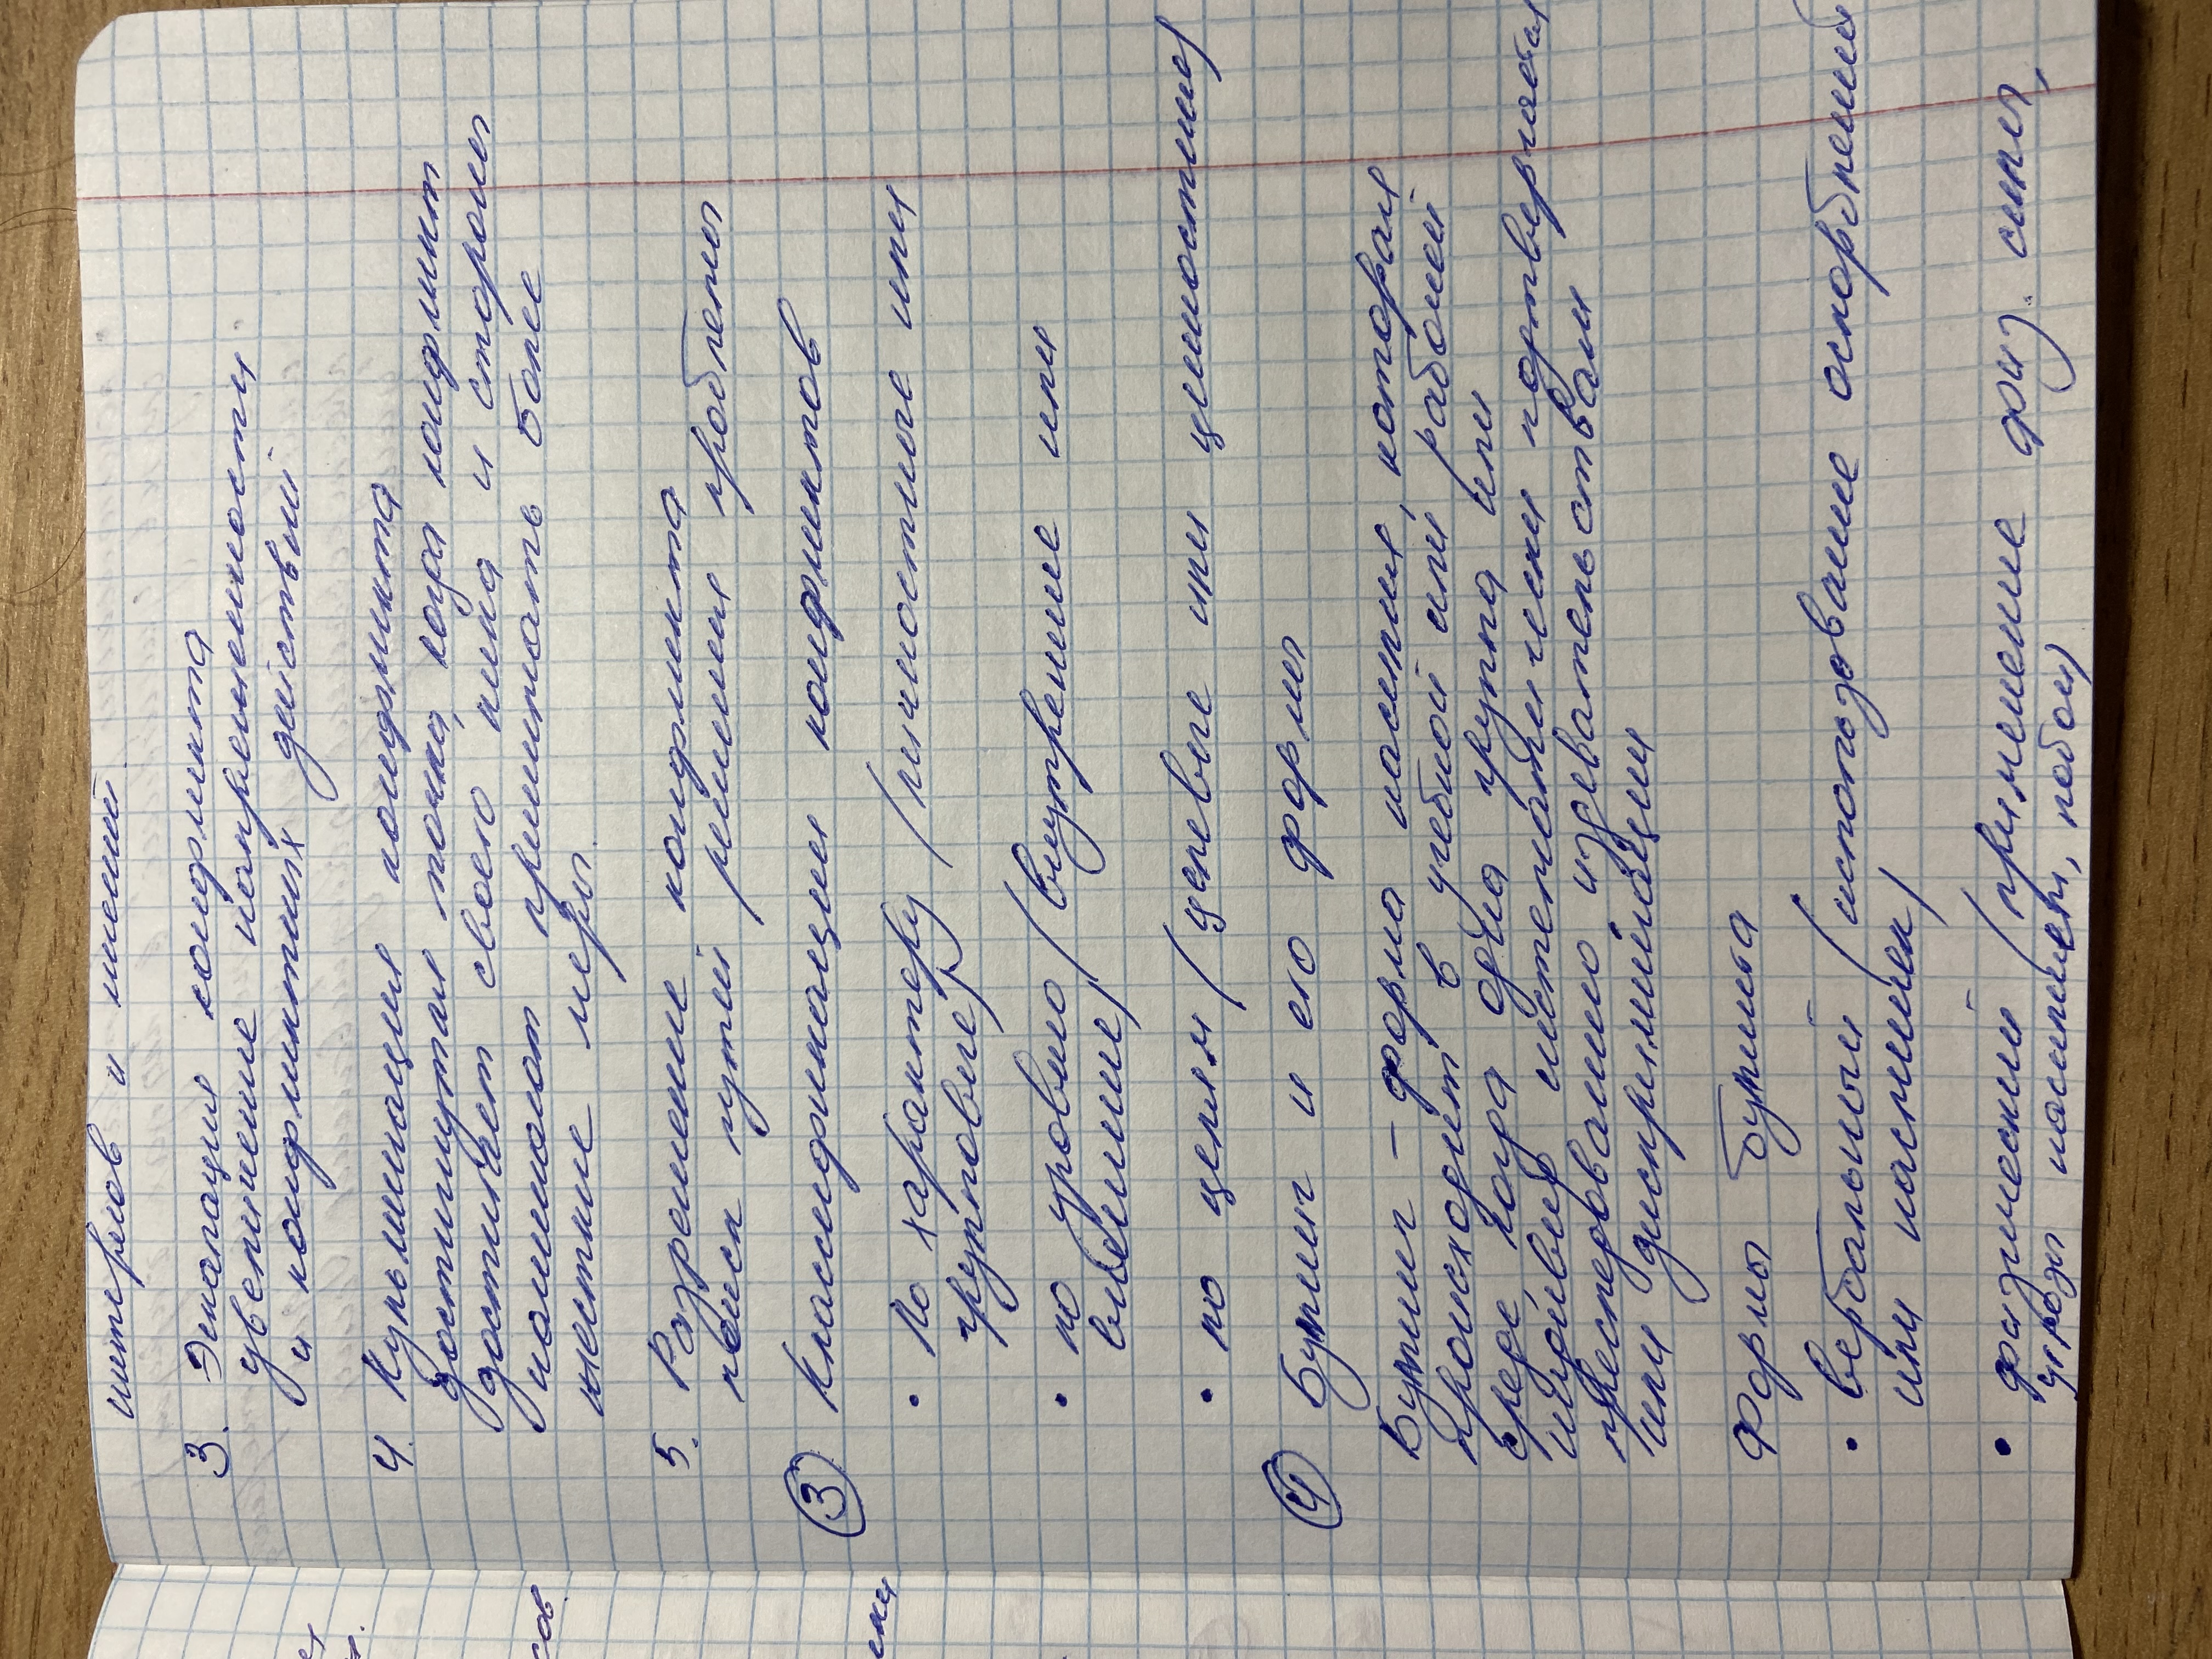 интересов и мнений.
3. Эскалация конфликта
увеличение напряженности
и конфликтных действий.
4. Кульминация конфликта
достигнутая точка, когда конфликт
достигает своего пика и стороны
начинают принимать более
жесткие меры.
5. Разрешение конфликта
поиск путей решения проблемы
③ Классификации конфликтов
• По характеру (личностные или
групповые)
• по уровню (внутренние или
внешние)
• по целям (целевые или ценностные)
④ Буллинг и его формы
Буллинг – форма насилия, которая
происходит в учебной или рабочей
среде, когда одна группа или
индивид систематически подвергается
преследованию издевательствам
или дискриминации
Формы буллинга
• вербальный (использование оскорблений
или насмешек)
• физический (применение физ. силы,
угрозы насилием, побои)
сов.